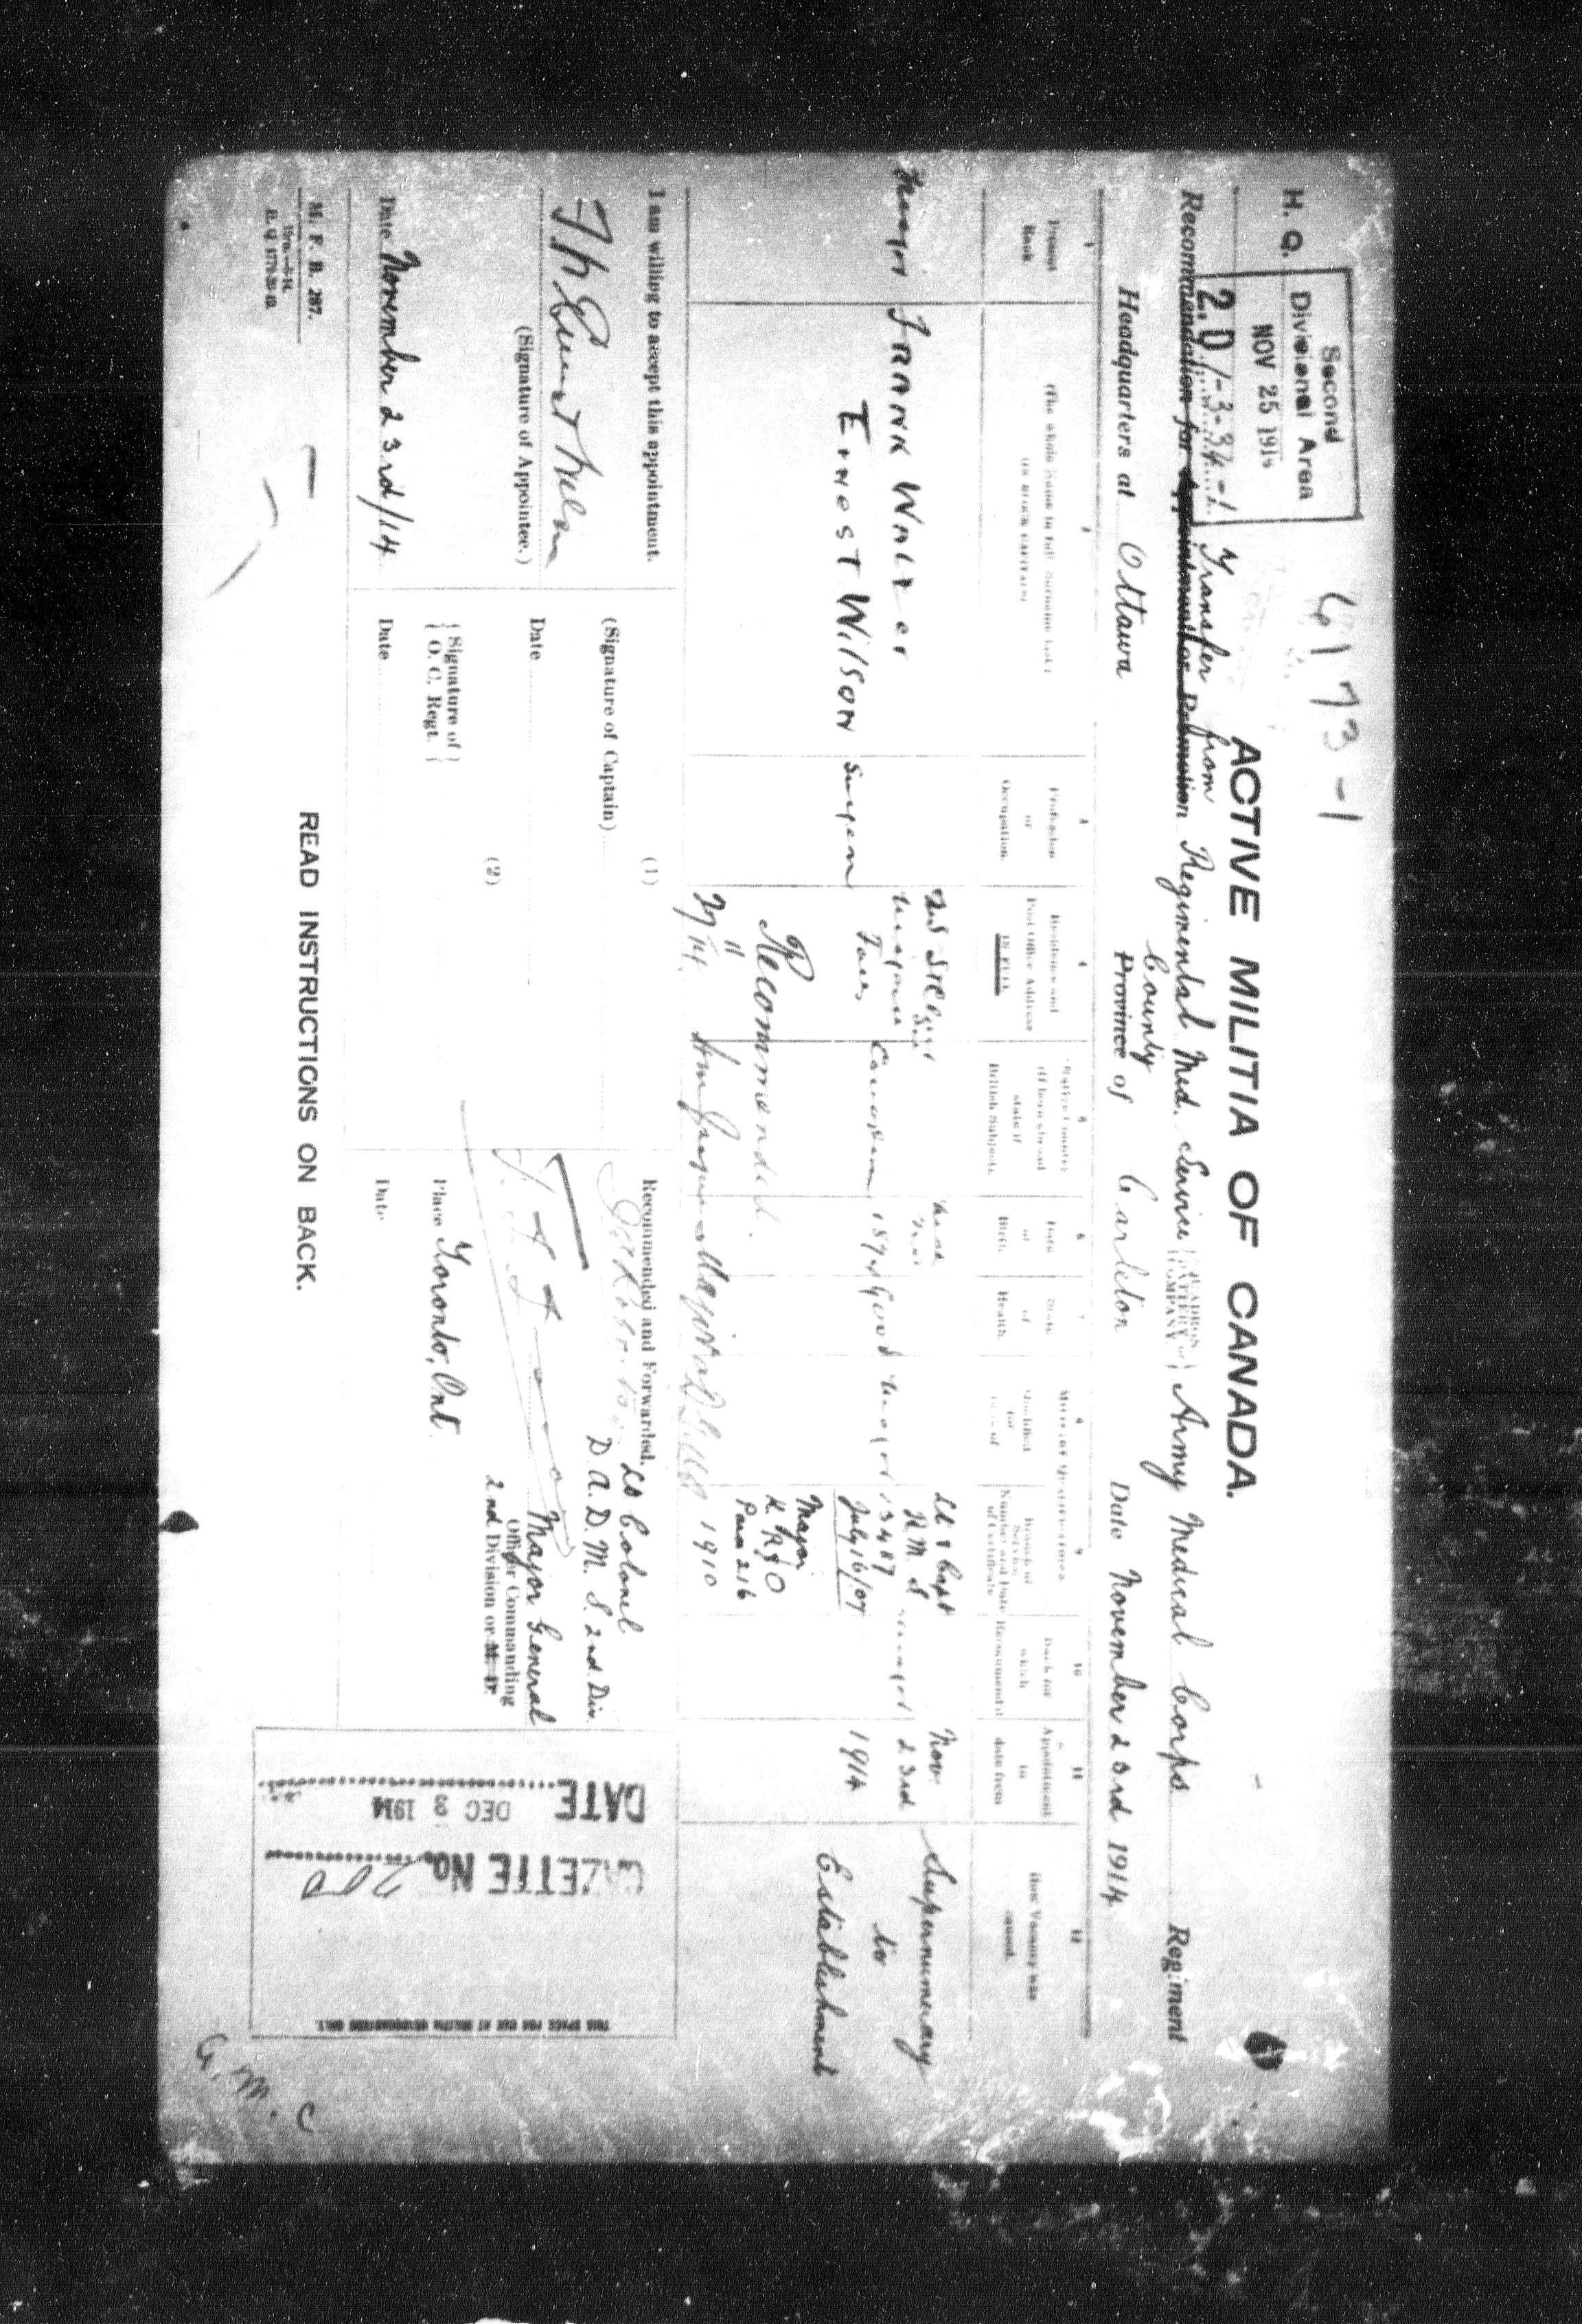 6173-1
H. Q.
Second
Divisional Area
NOV 25 1914
2.D 1-3-34-1
ACTIVE MILITIA OF CANADA.
Transfer from
Recommendation for Appointment or Promotion Regimental Med. Service Army Medical Corps Regiment
County
Headquarters at Ottawa Province of Carleton Date November 23rd 1914
1 2 3 4 5 6 7 8 9 10 11 12
Present Rank
(The whole Name in full. Surname last.)
(IN BLOCK CAPITALS)
Profession or Occupation.
Residence and Post Office Address IN FULL
Native Country (if born abroad state if British Subject).
Date of Birth.
State of Health.
Qualified for rank of
Branch of Service Number and Date of Certificate
Rank for which Recommended
Appointment to date from
How Vacancy was caused.
Major FRANK Walter
Ernest Wilson Surgeon
Niagara
Falls
Canadian
1874 Good Major
Lt & Capt
R. M. S
13487
July 16/07
Major
K. R & O
Para 216
Major
Nov.
23rd
1914
Supernumerary
to
Establishment
Recommended.
1910
I am willing to accept this appointment.
(Signature of Appointee.)
Date November 23rd/14
(1)
(Signature of Captain)
Date
(2)
Signature of
O. C. Regt.
Date
Recommended and Forwarded.
Lt Colonel
D. A. D. M. S. 2nd. Div.
Major General
Officer Commanding
2nd Division or M. D.
Place Toronto, Ont.
Date
DATE DEC 3 1914
GAZETTE No. 200
THIS SPACE FOR USE AT MILITIA HEADQUARTERS ONLY.
M. F. B. 287.
READ INSTRUCTIONS ON BACK.
A. M. C